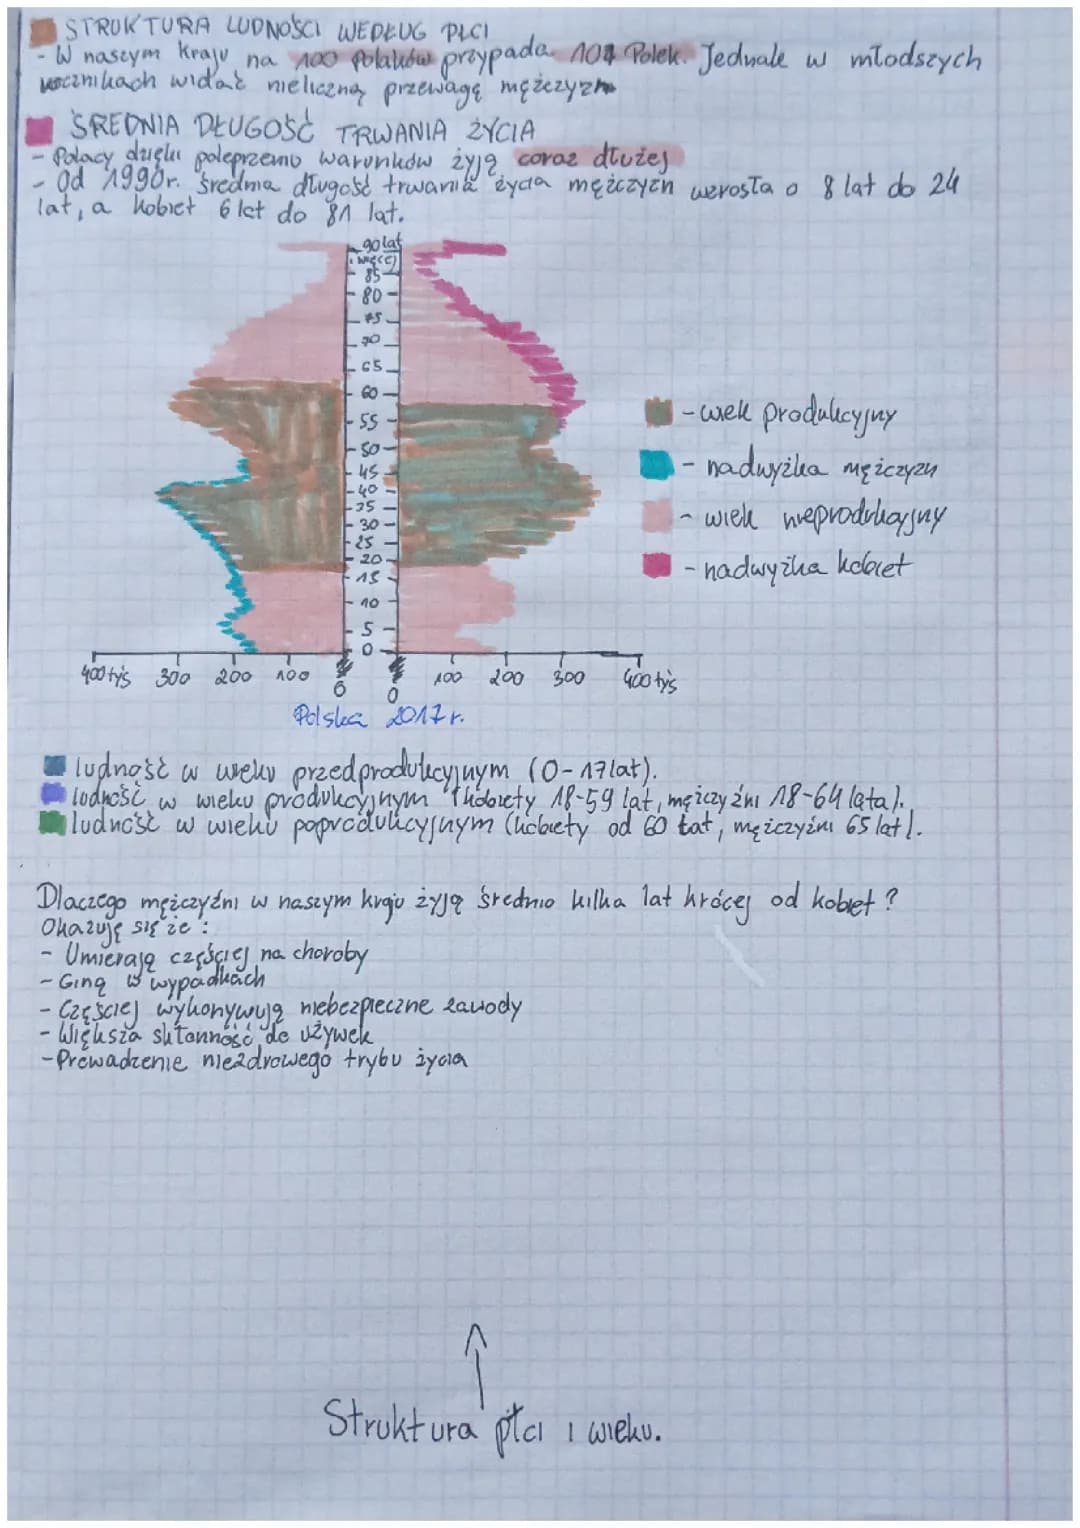 STRUKTURA LUDNOŚCI WEDŁUG PŁCI
- W naszym kraju na 100 Polaków przypada 107 Polek. Jednak w młodszych
rocznikach widać nieliczną przewagę mężczyzn
ŚREDNIA DŁUGOŚĆ TRWANIA ŻYCIA
- Polacy dzięki polepszeniu warunków żyją coraz dłużej
- Od 1990r. średnia długość trwania życia mężczyzn wzrosła o 8 lat do 24
lat, a kobiet 6 lat do 81 lat.
90 lat
i więcej
85
80
75
70
65
60
55
50
45
40
35
30
25
20
15
10
5
0
- wiek produkcyjny
- nadwyżka mężczyzn
- wiek nieprodukcyjny
- nadwyżka kobiet
400 tyś 300 200 100 0 0 100 200 300 400 tyś
Polska 2017 r.
ludność w wieku przedprodukcyjnym (0-17 lat).
ludność w wieku produkcyjnym (kobiety 18-59 lat, mężczyźni 18-64 lata).
ludność w wieku poprodukcyjnym (kobiety od 60 lat, mężczyźni 65 lat).
Dlaczego mężczyźni w naszym kraju żyją średnio kilka lat krócej od kobiet?
Okazuję się że:
- Umierają częściej na choroby
- Giną w wypadkach
- Częściej wykonywują niebezpieczne zawody
- Większa skłonność do używek
- Prowadzenie niezdrowego trybu życia
Struktura płci i wieku.